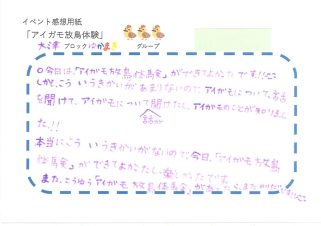 イベント感想用紙
「アイガモ放鳥体験」
大津ブロックゆかままグループ
○今日は、「アイガモ放鳥体験」ができてよかったです!!
しかも、こういうきかいがあまりないので、アイガモについて、お話
を聞けて、アイガモについて聞けたし、アイガモのことが知りほん
話が
た!!
本当にこういうきかいがないので、今日、「アイガモ放鳥
体験」ができてよかったし、楽しかったです。
また、こうゆう「アイガモ放鳥体験」が